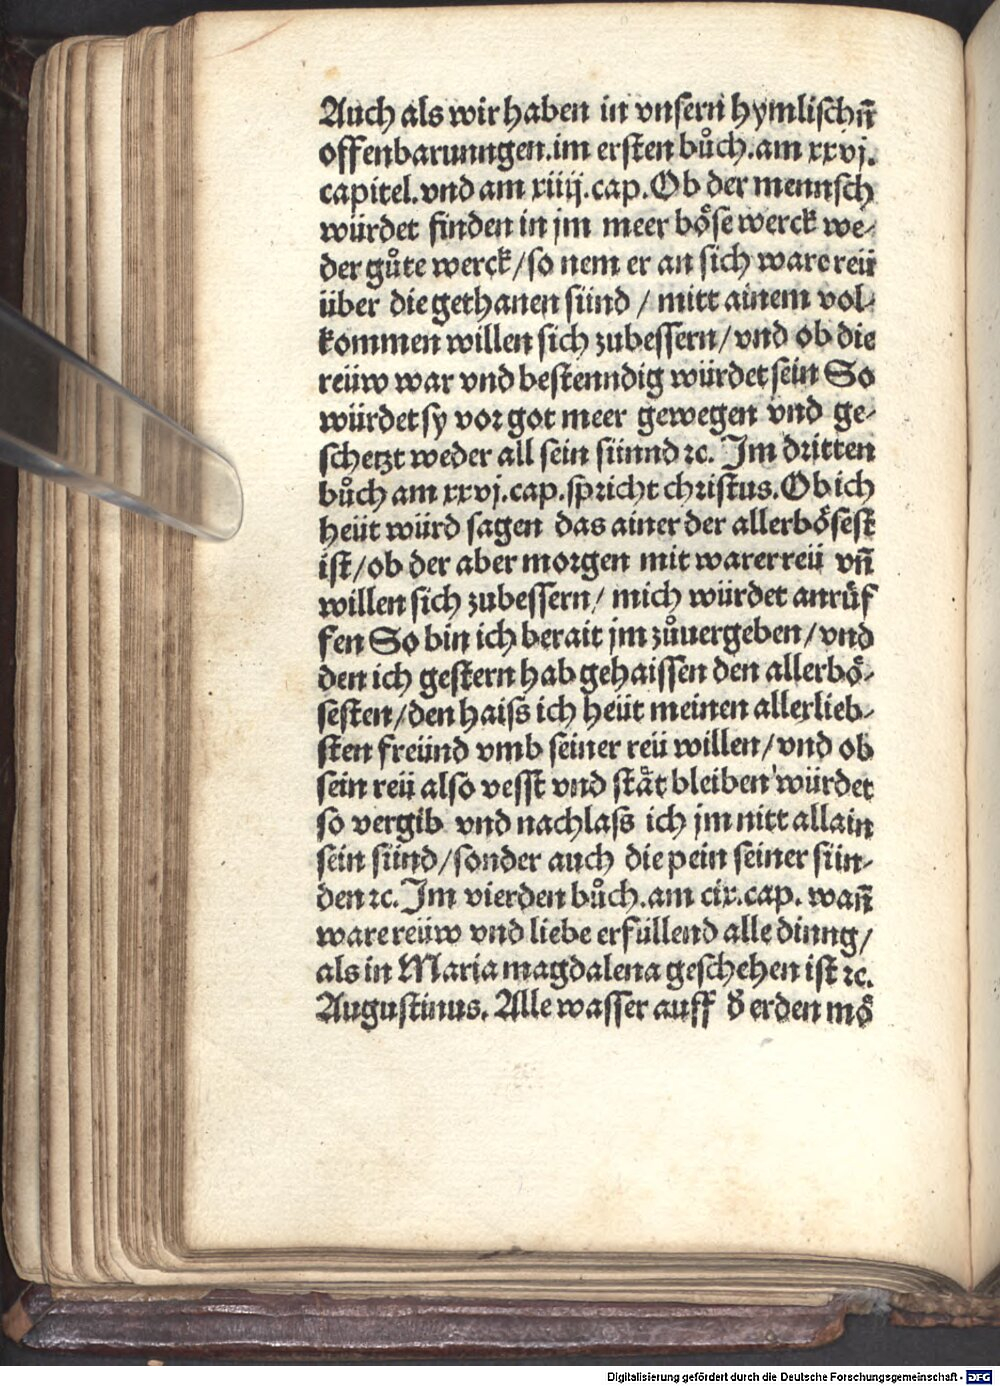 Auch als wir haben in vnsern hymlischn̄
offenbarunngen.im ersten bůch.am xxvj.
capitel.vnd am xiiij.cap.Ob der mennsch
würdet finden in jm meer böse werck we-
der gůte werck/so nem er an sich ware reü
über die gethanen sünd / mitt ainem vol-
kommen willen sich zubessern/vnd ob die
reüw war vnd bestenndig würdet sein So
würdet sy vor got meer gewegen vnd ge-
schetzt weder all sein sünnd ꝛc. Im dritten
bůch am xxvj.cap.spricht christus.Ob ich
heüt würd sagen das ainer der allerbösest
ist/ob der aber morgen mit warer reü vn̄
willen sich zubessern/ mich würdet anrüf
fen So bin ich berait jm zůuergeben/vnd
den ich gestern hab gehaissen den allerbö-
sesten/den haiss ich heüt meinen allerlieb-
sten freünd vmb seiner reü willen/vnd ob
sein reü also vesst vnd stät bleiben würdet
so vergib vnd nachlass ich jm nitt allain
sein sünd/sonder auch die pein seiner sün-
den ꝛc. Im vierden bůch.am cix.cap. wan̄
ware reüw vnd liebe erfüllend alle dinng/
als in Maria magdalena geschehen ist ꝛc.
Augustinus. Alle wasser auff d̕ erden mö
Digitalisierung gefördert durch die Deutsche Forschungsgemeinschaft - DFG